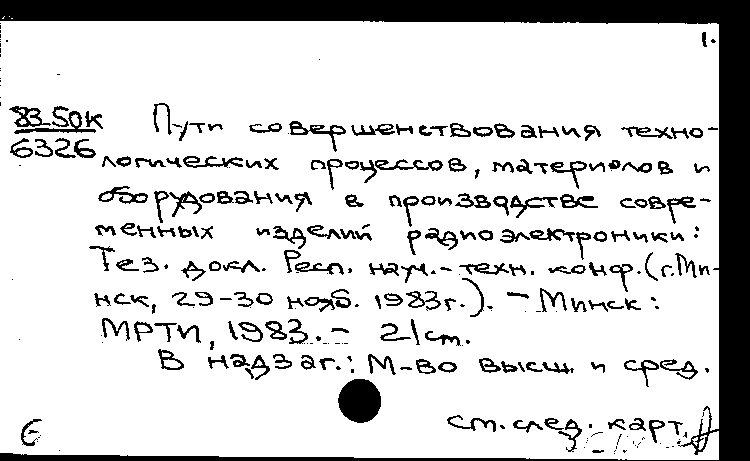 1.
83-50К Пути совершенствования техно-
6326 логических процессов, материалов и
оборудования в производстве совре-
менных изделий радиоэлектроники:
Тез. докл. Респ. науч.-техн. конф. (г. Ми-
нск, 29-30 нояб. 1983г.). – Минск:
МРТИ, 1983. – 21 ст.
В надзаг.: М-во высш. и сред.
см. след. карт.
Е